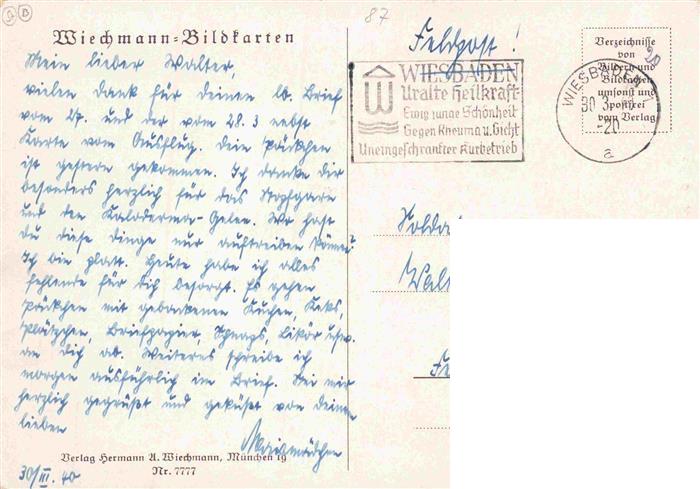 87
Wiechmann-Bildkarten
Mein lieber Walter,
vielen Dank für deinen lb. Brief
vom 27. und der vom 28.3 nebst
Karte vom Ausflug. Dein Päckchen
ist gestern gekommen. Ich danke dir
besonders herzlich für das Stopfgarn
und den Kaloderma-Gelen. Wo hast
du diese Dinge nur auftreiben können?
Ich bin platt. Heute habe ich alles
fehlende für dich besorgt. Es gehen
Päckchen mit gebackenen Kuchen, Keks,
Plätzchen, Briefpapier, Schnaps, Likör usw.
an dich ab. Weiteres schreibe ich
morgen ausführlich im Brief. Sei mir
herzlich gegrüßt und geküßt von deinem
lieben
Maismädchen
30/III. 40
Verlag Hermann A. Wiechmann, München 19
Nr. 7777
Feldpost!
WIESBADEN
Uralte Heilkraft
Ewig junge Schönheit
Gegen Rheuma u. Gicht
Uneingeschränkter Kurbetrieb
WIESBADEN 1
30 3
-20
a
Verzeichnisse
von
Bildern und
Bildkarten
umsonst und
postfrei
vom Verlag